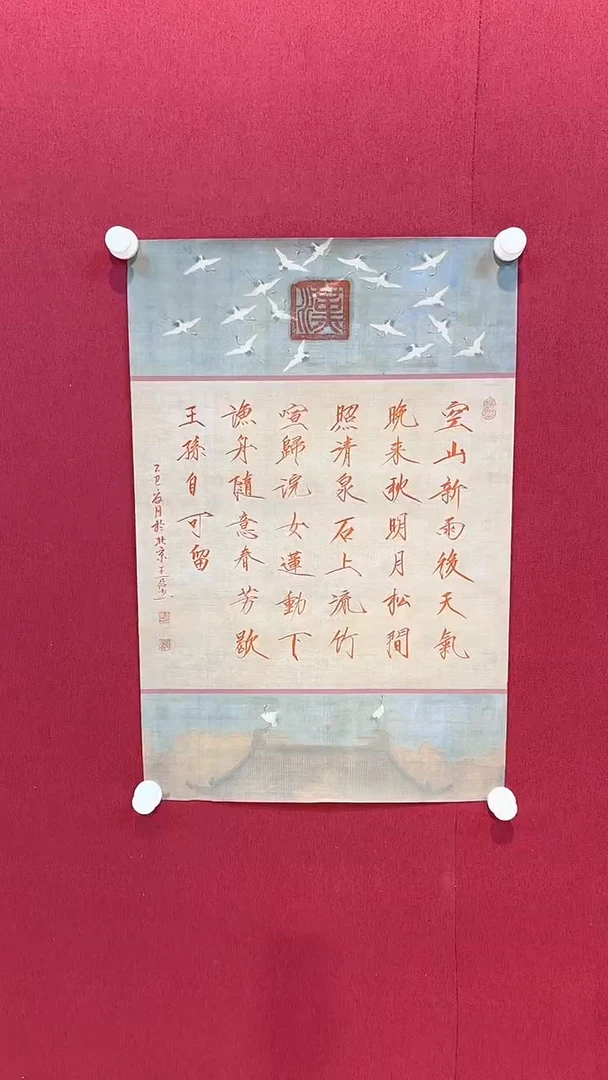 漢
空山新雨後天氣
晚来秋明月松間
照清泉石上流竹
喧歸浣女蓮動下
漁舟隨意春芳歇
王孫自可留
乙巳夏月於北京王